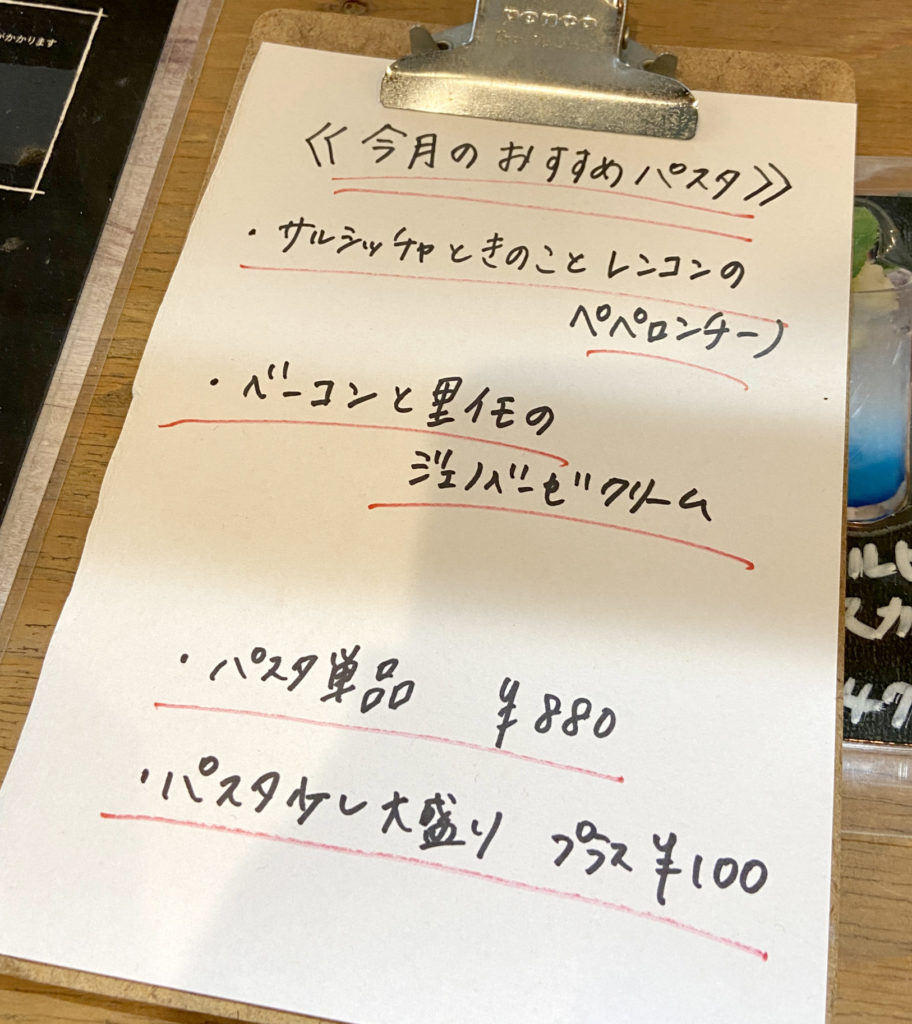 がかかります
penco
《今月のおすすめパスタ》
・サルシッチャときのことレンコンの
ペペロンチーノ
・ベーコンと里イモの
ジェノバーゼクリーム
・パスタ単品 ¥880
・パスタ少し大盛り プラス¥100